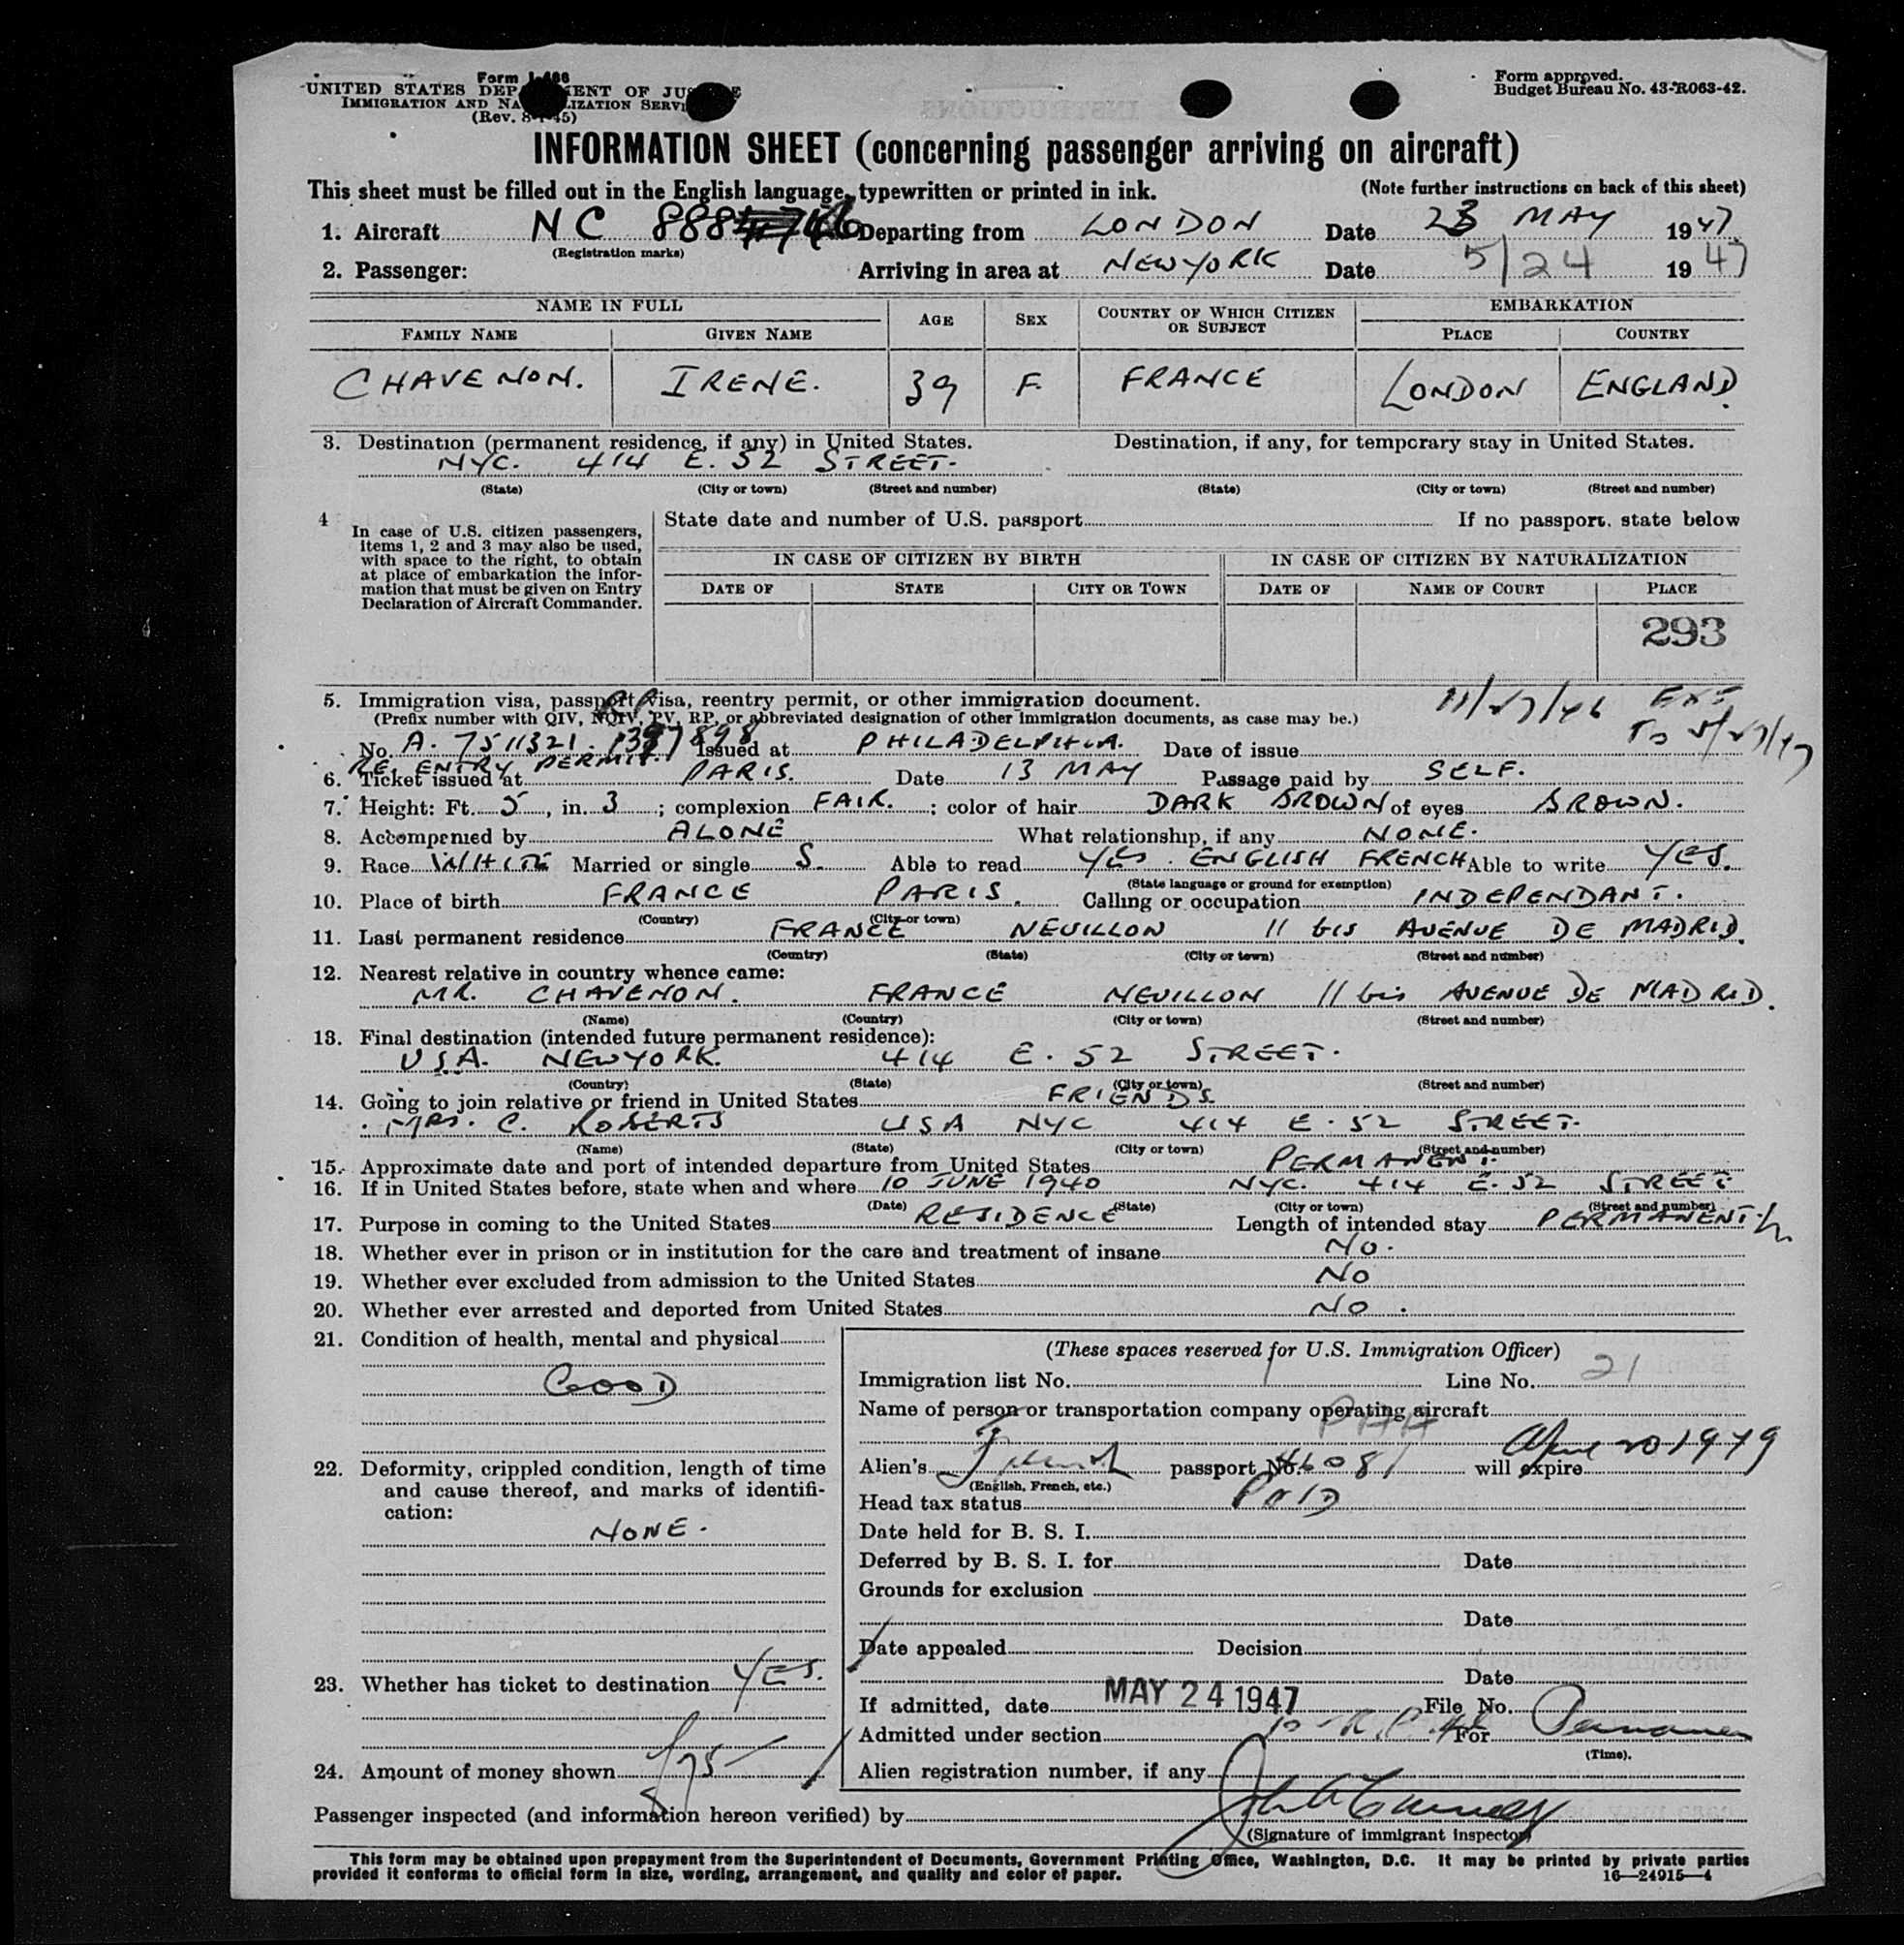 Form I-466
UNITED STATES DEP MENT OF JUS E
IMMIGRATION AND NA LIZATION SERVI
(Rev. 8-1-45)
Form approved.
Budget Bureau No. 43-R063-42.
INFORMATION SHEET (concerning passenger arriving on aircraft)
This sheet must be filled out in the English language, typewritten or printed in ink. (Note further instructions on back of this sheet)
1. Aircraft NC 888 Departing from LONDON Date 23 MAY 1947
(Registration marks)
2. Passenger: Arriving in area at NEWYORK Date 5/24 1947
NAME IN FULL AGE SEX COUNTRY OF WHICH CITIZEN OR SUBJECT EMBARKATION
FAMILY NAME GIVEN NAME PLACE COUNTRY
CHAVENON. IRENE. 39 F. FRANCE LONDON ENGLAND.
3. Destination (permanent residence, if any) in United States. Destination, if any, for temporary stay in United States.
NYC. 414 E. 52 STREET.
(State) (City or town) (Street and number) (State) (City or town) (Street and number)
4 In case of U.S. citizen passengers, items 1, 2 and 3 may also be used, with space to the right, to obtain at place of embarkation the infor-mation that must be given on Entry Declaration of Aircraft Commander.
State date and number of U.S. passport If no passport, state below
IN CASE OF CITIZEN BY BIRTH IN CASE OF CITIZEN BY NATURALIZATION
DATE OF STATE CITY OR TOWN DATE OF NAME OF COURT PLACE
293
5. Immigration visa, passport visa, reentry permit, or other immigration document. 11/27/46 EXT
(Prefix number with QIV, NQIV, PV, RP, or abbreviated designation of other immigration documents, as case may be.) TO 5/27/47
No. A. 7511321. 1397898 Issued at PHILADELPHIA. Date of issue
RE ENTRY PERMIT.
6. Ticket issued at PARIS. Date 13 MAY Passage paid by SELF.
7. Height: Ft. 5, in. 3; complexion FAIR.; color of hair DARK BROWN of eyes BROWN.
8. Accompenied by ALONE What relationship, if any NONE.
9. Race WHITE Married or single S. Able to read YES. ENGLISH FRENCH Able to write YES.
(State language or ground for exemption)
10. Place of birth FRANCE PARIS. Calling or occupation INDEPENDANT.
(Country) (City or town)
11. Last permanent residence FRANCE NEUILLON 11 bis AVENUE DE MADRID.
(Country) (State) (City or town) (Street and number)
12. Nearest relative in country whence came:
MR. CHAVENON. FRANCE NEUILLON 11 bis AVENUE DE MADRID.
(Name) (Country) (City or town) (Street and number)
13. Final destination (intended future permanent residence):
USA. NEWYORK. 414 E. 52 STREET.
(Country) (State) (City or town) (Street and number)
14. Going to join relative or friend in United States FRIENDS.
MRS. C. ROBERTS USA NYC 414 E. 52 STREET.
(Name) (State) (City or town) (Street and number)
15. Approximate date and port of intended departure from United States PERMANENT.
16. If in United States before, state when and where 10 JUNE 1940 NYC. 414 E. 52 STREET
(Date) (State) (City or town) (Street and number)
17. Purpose in coming to the United States RESIDENCE Length of intended stay PERMANENT.
18. Whether ever in prison or in institution for the care and treatment of insane NO.
19. Whether ever excluded from admission to the United States NO
20. Whether ever arrested and deported from United States NO.
21. Condition of health, mental and physical
GOOD
22. Deformity, crippled condition, length of time
and cause thereof, and marks of identifi-
cation:
NONE.
23. Whether has ticket to destination YES.
24. Amount of money shown $75
(These spaces reserved for U.S. Immigration Officer)
Immigration list No. 1 Line No. 21
Name of person or transportation company operating aircraft
PAA
Alien's French passport No. 46081 will expire April 20 1949
(English, French, etc.)
Head tax status PAID
Date held for B. S. I.
Deferred by B. S. I. for Date
Grounds for exclusion
Date
Date appealed Decision
Date
If admitted, date MAY 24 1947 File No.
Admitted under section For Permanen
(Time).
Alien registration number, if any
Passenger inspected (and information hereon verified) by
(Signature of immigrant inspector)
This form may be obtained upon prepayment from the Superintendent of Documents, Government Printing Office, Washington, D.C. It may be printed by private parties
provided it conforms to official form in size, wording, arrangement, and quality and color of paper. 16—24915—4